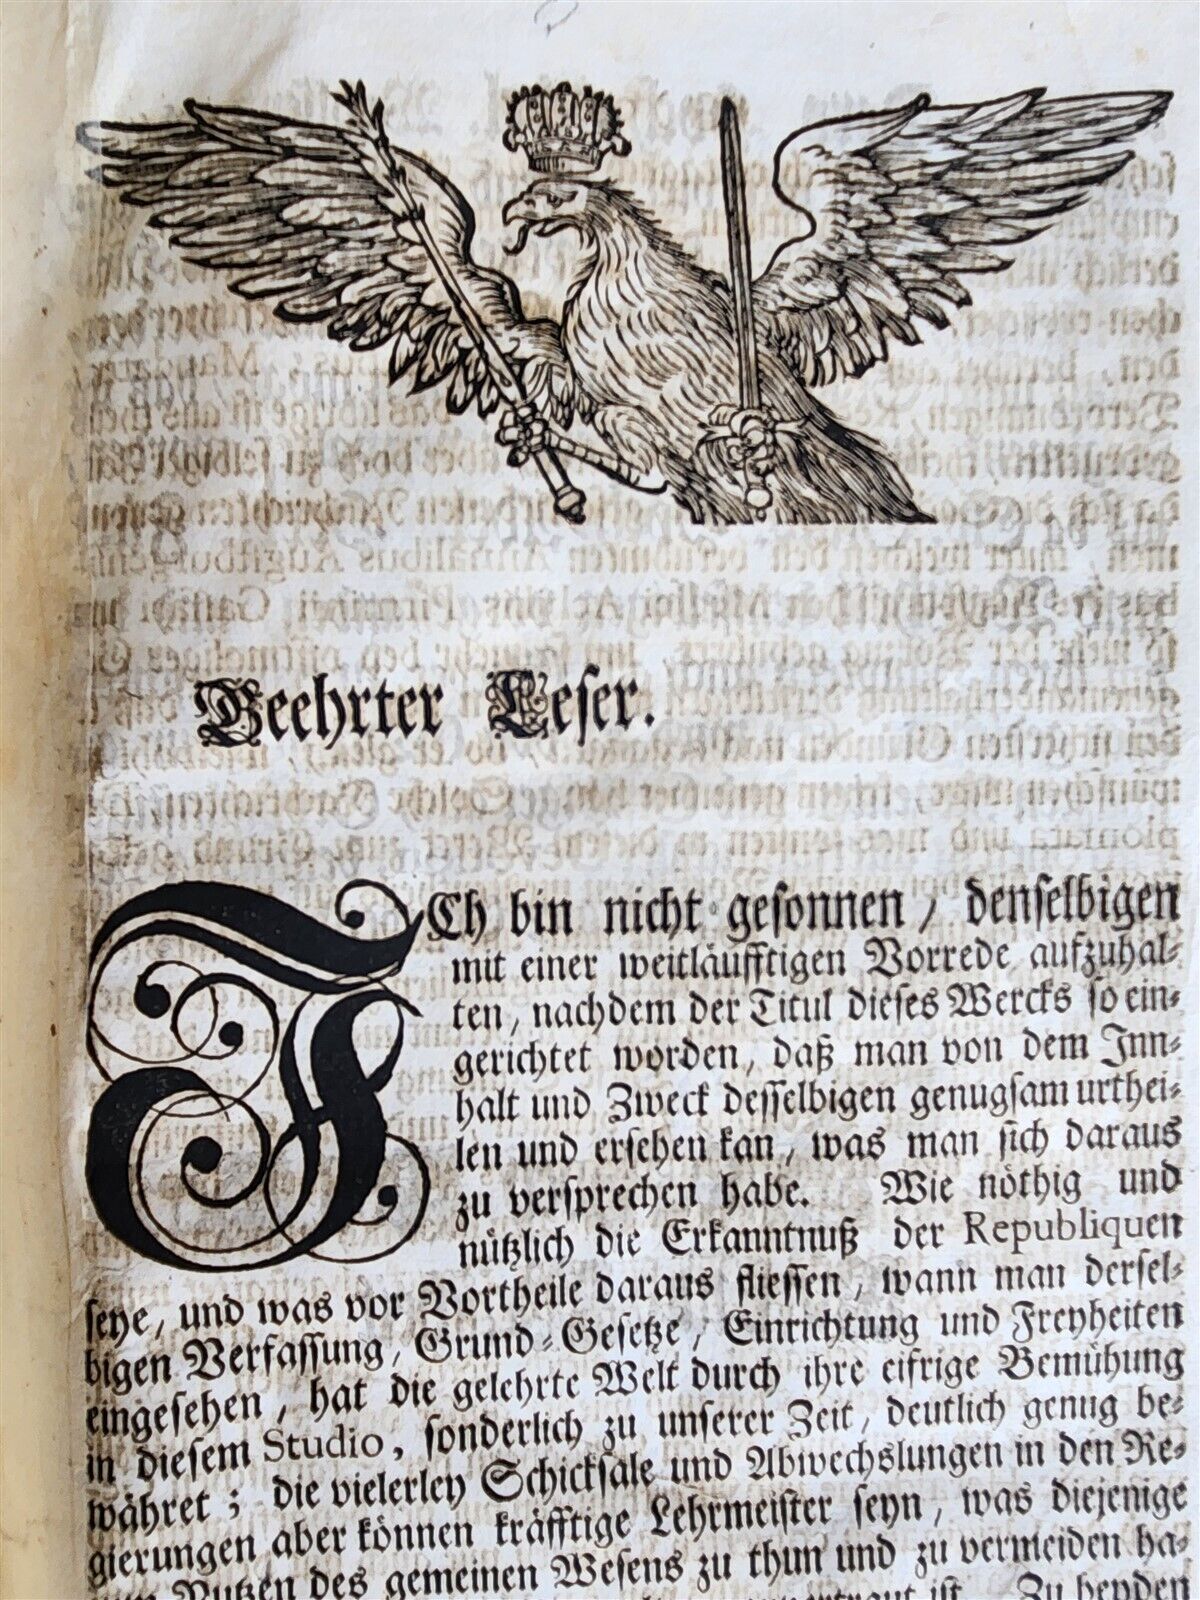 Geehrter Leser.
ICh bin nicht gesonnen, denselbigen
mit einer weitläufftigen Vorrede aufzuhal-
ten, nachdem der Titul dieses Wercks so ein-
gerichtet worden, daß man von dem Inn-
halt und Zweck desselbigen genugsam urthei-
len und ersehen kan, was man sich daraus
zu versprechen habe. Wie nöthig und
nützlich die Erkanntnuß der Republiquen
seye, und was vor Vortheile daraus fliessen, wann man dersel-
bigen Verfassung, Grund-Gesetze, Einrichtung und Freyheiten
eingesehen, hat die gelehrte Welt durch ihre eifrige Bemühung
in diesem Studio, sonderlich zu unserer Zeit, deutlich genug be-
währet; die vielerley Schicksale und Abwechslungen in den Re-
gierungen aber können kräfftige Lehrmeister seyn, was diejenige
Nutzen des gemeinen Wesens zu thun und zu vermeiden ha-
ist. Zu beyden